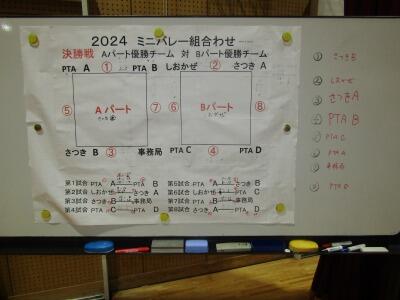 2024 ミニバレー組合わせ
決勝戦 Aパート優勝チーム 対 Bパート優勝チーム
PTA A ① PTA B しおかぜ ② さつき A
⑤ Aパート ⑦ ⑥ Bパート ⑧
さつき B ③ 事務局 PTA C ④ PTA D
第1試合 PTA A PTA B 第5試合 PTA A さつき B
第2試合 しおかぜ さつき A 第6試合 しおかぜ PTA C
第3試合 さつき B 事務局 第7試合 PTA B 事務局
第4試合 PTA C PTA D 第8試合 さつき A PTA D
① さつきB
② しおかぜ
③ さつきA
④ PTA B
PTA C
PTA A
事務局
PTA D